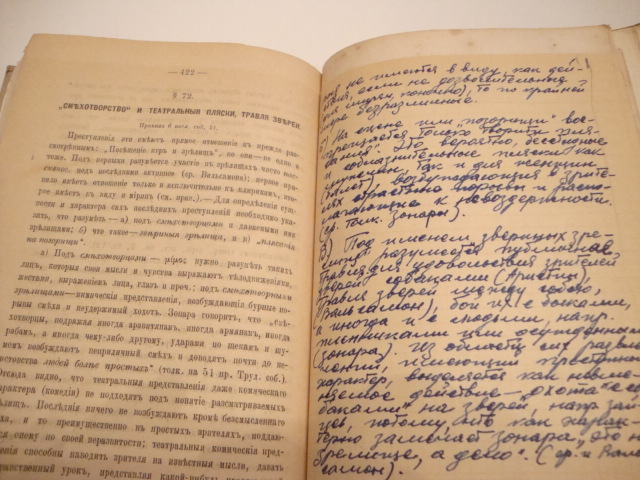 — 422 —
§ 72.
„СМѢХОТВОРСТВО" И ТЕАТРАЛЬНЫЯ ПЛЯСКИ, ТРАВЛЯ ЗВѢРЕЙ.
Правила 6 всел. соб. 51.
Преступленія эти имѣютъ прямое отношеніе къ прежде раз-
смотрѣннымъ: „Посѣщеніе игръ и зрѣлищъ", но они—не одно и
тоже. Подъ первыми разумѣется участіе въ зрѣлищахъ часто пас-
сивное, подъ послѣдними активное (ср. Вальсамона); первое пра-
вило имѣетъ отношеніе только и исключительно къ клирикамъ, второе
имѣетъ въ виду и мірянъ (см. прим.).— Для опредѣленія сущ-
ности и характера сихъ послѣднихъ преступленій необходимо ука-
зать, что разумѣть — а) подъ смѣхотворцами и даваемыми ими
зрѣлищами; б) что такое—звѣриныя зрѣлища, и в) „плясанія
на позорищи".
а) Подъ смѣхотворцами — μῖμος, нужно разумѣть такихъ
лицъ, которыя свои мысли и чувства выражаютъ тѣлодвиженіями,
жестами, выраженіемъ лица, глазъ и проч.; подъ смѣхотворными
зрѣлищами—мимическія представленія, возбуждающія бурные по-
рывы смѣха и неудержимый хохотъ. Зонара говоритъ, что „смѣ-
хотворцы, подражая иногда аравитянамъ, иногда армянамъ, иногда
рабамъ, а иногда чему-либо другому, ударами по щекамъ и шу-
момъ возбуждаютъ неприличный смѣхъ и доводятъ почти до не-
истовства людей болѣе простыхъ" (толк. на 51 пр. Трул. соб.).
Отсюда видно, что театральныя представленія даже комическаго
характера (комедіи) не подходятъ подъ понятіе разсматриваемыхъ
зрѣлищъ. Послѣднія ничего не возбуждаютъ кромѣ безсмысленнаго
смѣха, и то преимущественно въ простыхъ зрителяхъ, поддаю-
щихся оному по своей неразвитости; театральныя комическія пред-
ставленія способны наводить зрителя на извѣстныя мысли, давать
нравственный урокъ, представляя какой-нибудь
не имеются в виду, как дей-
ствия, если не дозволительные
для мирян, конечно), то по крайней
мере безразличные.
б) На сцене или „позорищи" вос-
прещается только творити пля-
сания. Это вероятно, бесстыдные
и соблазнительные пляски как
мужчин, так и для женщин
(балет), возбуждающая в зрите-
лях страстные порывы и распо-
лагающие к невоздержности.
(ср. толк. Зонары).
в) Под именем звериных зре-
лищ разумеется публичная
травля для удовольствия зрителей
зверей собаками (Аристин),
травля зверей между собою,
(Вальсамон), бои их с быками,
а иногда и с людьми, напр.
пленниками или осужденными
(Зонара). Из области сих развле-
чений, имеющий преступный
характер, выделяется как невме-
няемое действие — „охота с со-
баками" на зверей, напр. зай-
цев, потому что как харак-
терно замечает Зонара, „это не
зрелище, а дело". (ср. и Валь-
самон).